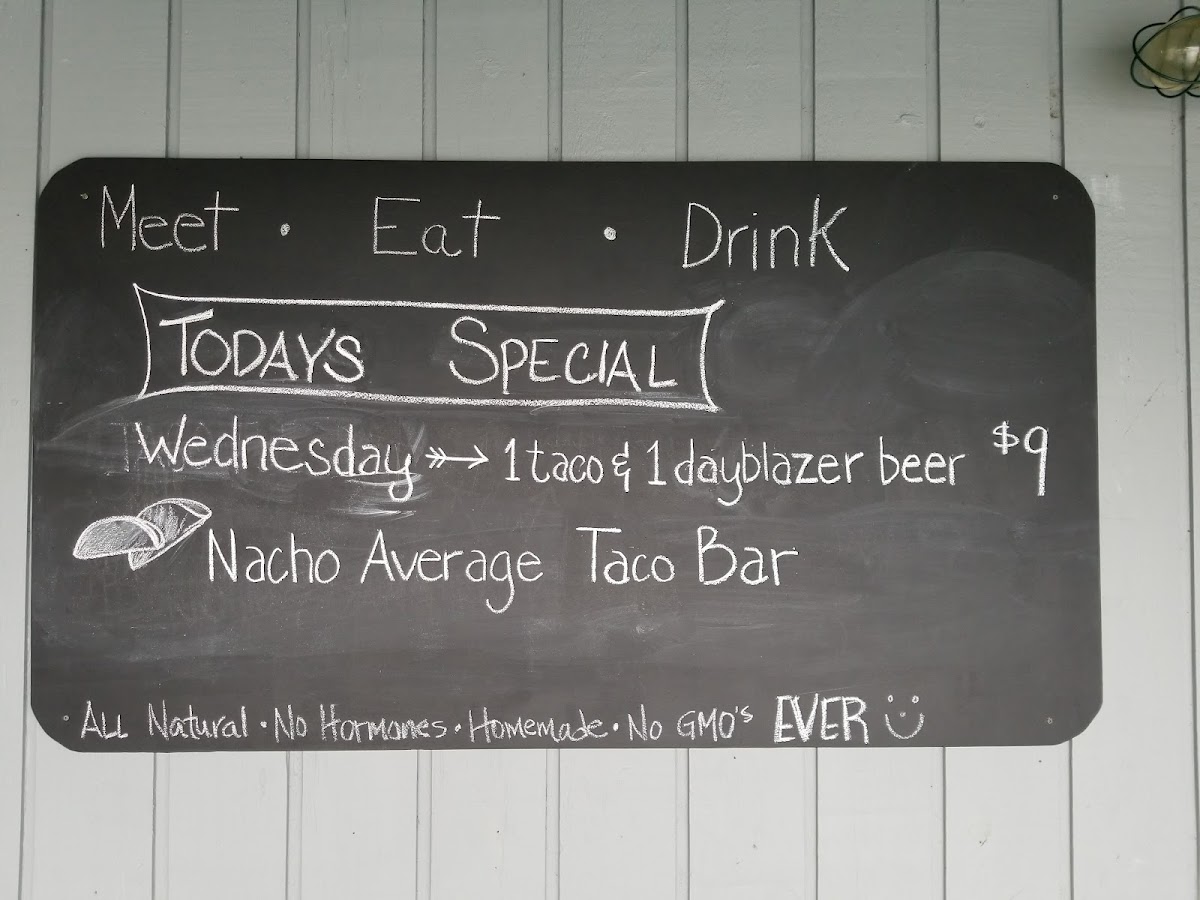 Meet • Eat • Drink
TODAYS SPECIAL
Wednesday → 1 taco & 1 dayblazer beer $9
Nacho Average Taco Bar
ALL Natural • No Hormones • Homemade • No GMO's EVER